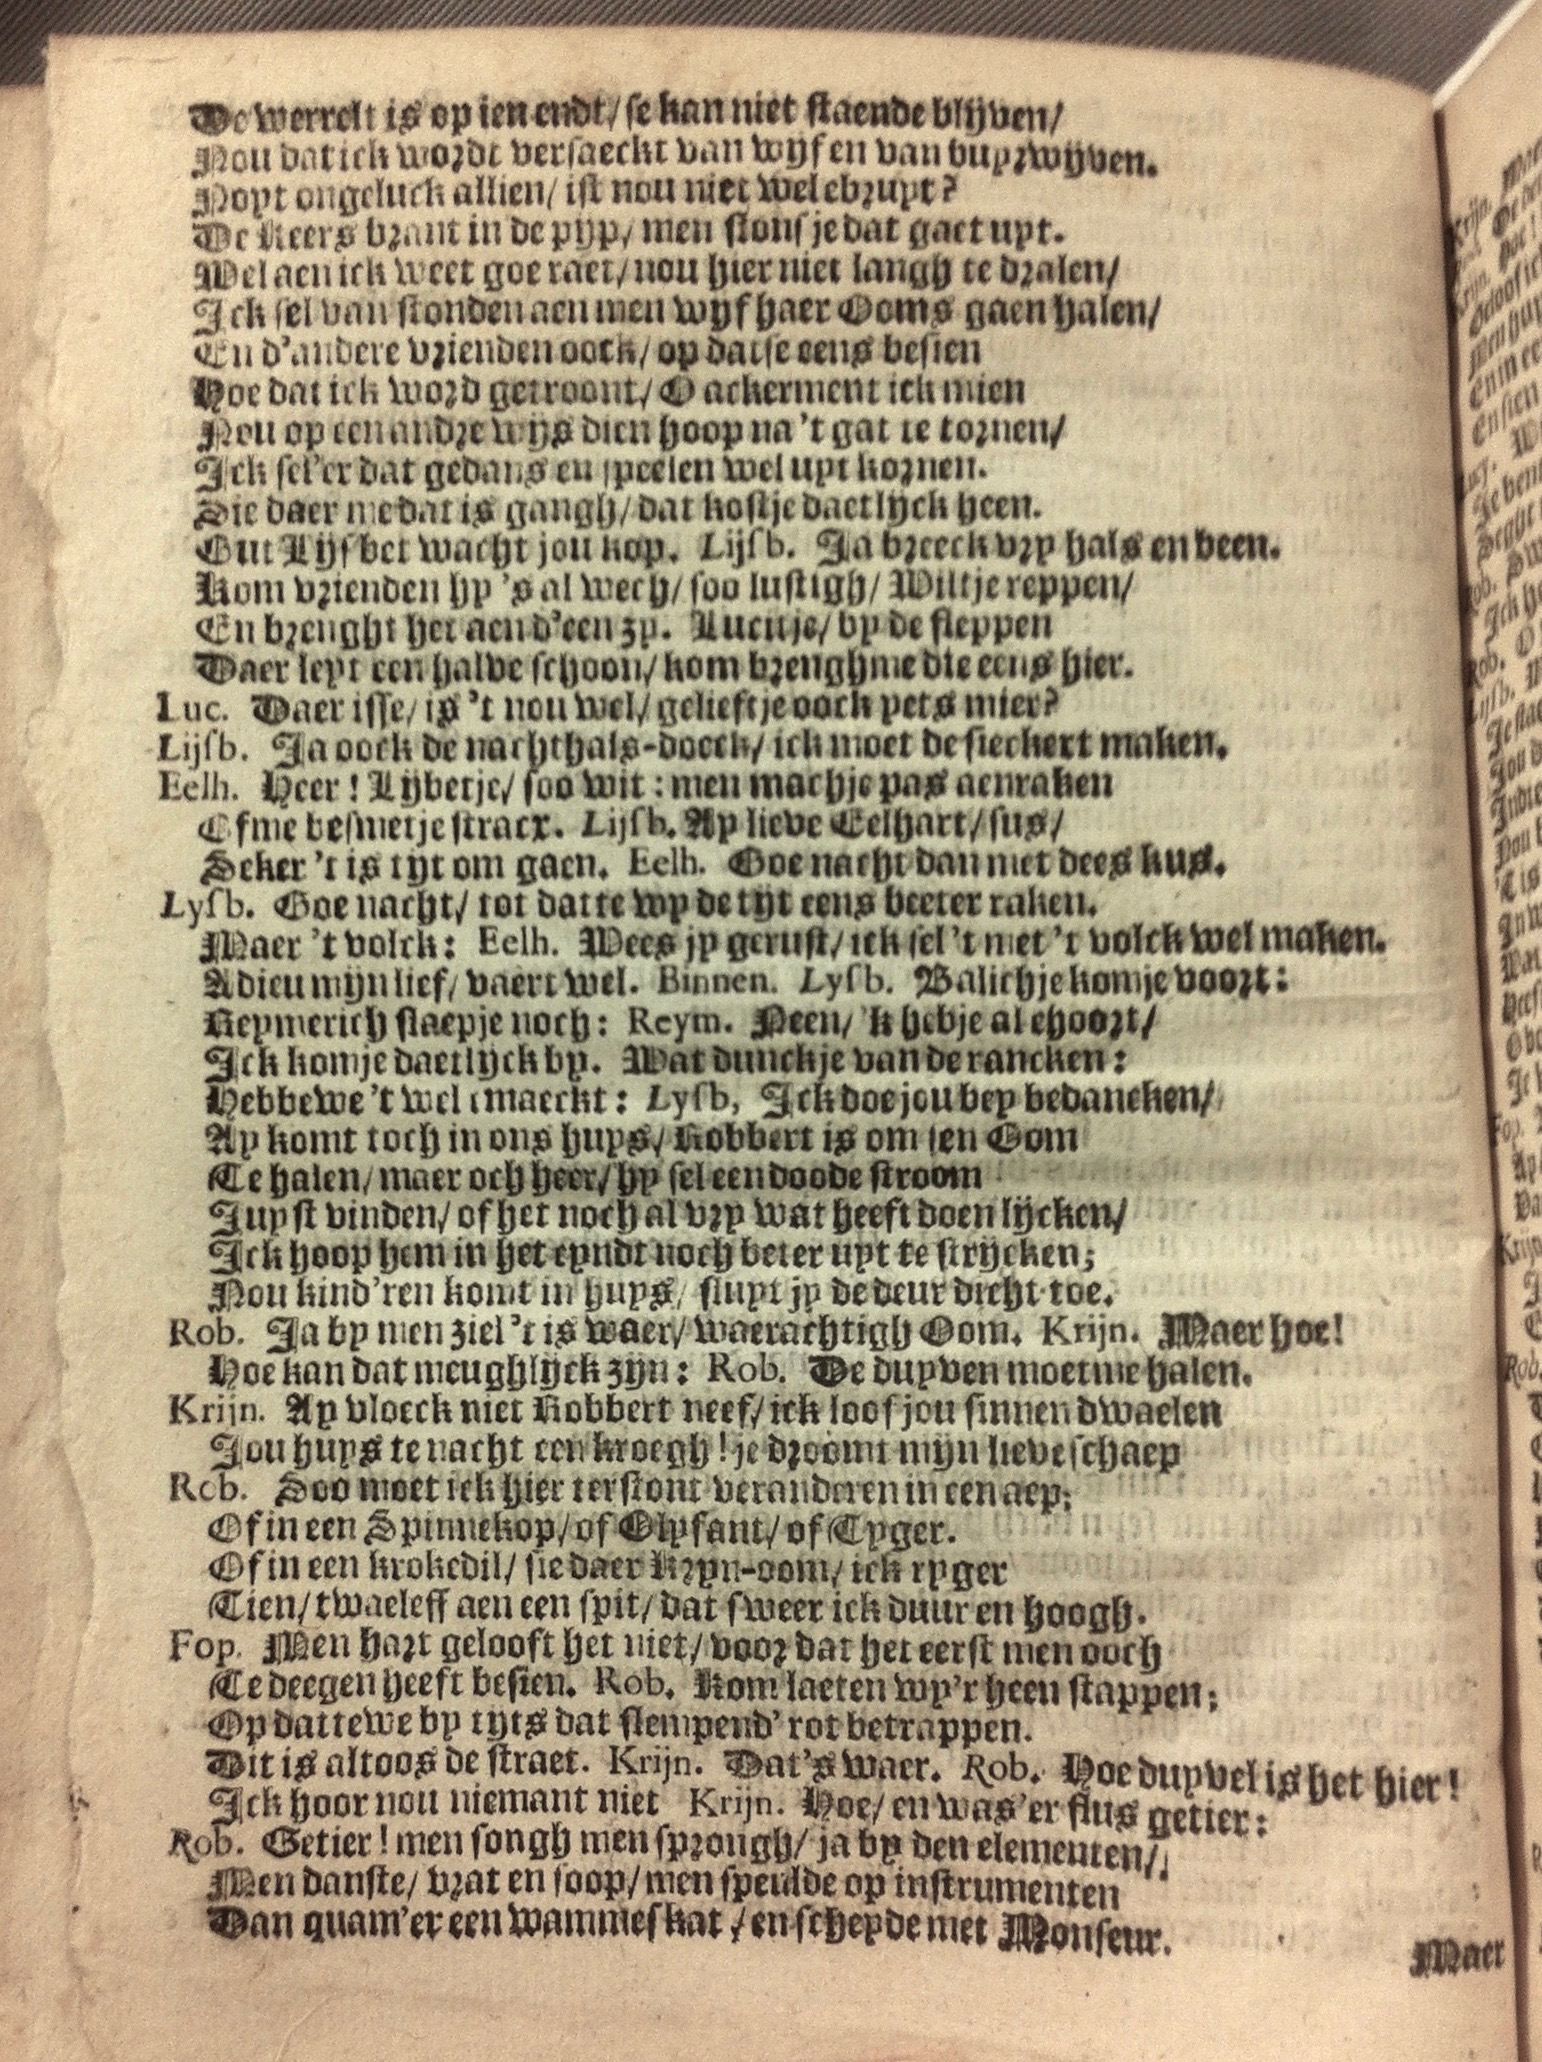 De werrelt is op ien endt/ se kan niet staende blijven/
Nou dat ick wordt versaeckt van wijf en van buyrwijven.
Noyt ongeluck allien/ ist nou niet wel ebruyt?
De Keers brant in de pijp/ men slons je dat gaet uyt.
Wel aen ick weet goe raet/ nou hier niet langh te dralen/
Ick sel van stonden aen men wijf haer Ooms gaen halen/
En d'andere vrienden oock/ op datse eens besien
Hoe dat ick word getroont/ O ackerment ick mien
Nou op een andre wijs dien hoop na 't gat te tornen/
Ick sel'er dat gedans en speelen wel uyt kornen.
Sie daer me dat is gangh/ dat kostje daetlijck heen.
Gut Lijsbet wacht jou kop. Lijsb. Ja breeck vry hals en been.
Kom vrienden hy 's al wech/ soo lustigh/ Wilt je reppen/
En brenght het aen d'een zy. Lucutje/ by de steppen
Daer leyt een halve schoon/ kom brenghme die eens hier.
Luc. Daer isse/ is 't nou wel/ gelieftje oock yets mier?
Lijsb. Ja oock de nachthals-doeck/ ick moet de sieckert maken.
Eelh. Heer! Lijbetje/ soo wit: men mach je pas aenraken
Of me besmetje stracx. Lijsb. Ay lieve Eelhart/ sus/
Seker 't is tijt om gaen. Eelh. Goe nacht dan met dees kus.
Lysb. Goe nacht/ tot datte wy de tijt eens beeter raken.
Maer 't volck: Eelh. Wees jy gerust/ ick sel 't met 't volck wel maken.
Adieu mijn lief/ vaert wel. Binnen. Lysb. Balichje komje voort:
Reymerich slaepje noch: Reym. Neen/ 'k heb je al ehoort/
Ick kom je daetlijck by. Wat dunckje van de rancken:
Hebbewe 't wel emaeckt: Lysb, Ick doe jou bey bedancken/
Ay komt toch in ons huys/ Robbert is om sen Oom
Te halen/ maer och heer/ hy sel een doode stroom
Juyst vinden/ of het noch al vry wat heeft doen lijcken/
Ick hoop hem in het eyndt noch beter uyt te strijcken;
Nou kind'ren komt in huys/ sluyt jy de deur dicht toe.
Rob. Ja by men ziel 't is waer/ waerachtigh Oom. Krijn. Maer hoe!
Hoe kan dat meughlijck zijn: Rob. De duyven moet me halen.
Krijn. Ay vloeck niet Robbert neef/ ick loof jou sinnen dwaelen
Jou huys te nacht een kroegh! je droomt mijn lieve schaep
Rob. Soo moet ick hier terstont veranderen in een aep;
Of in een Spinnekop/ of Olyfant/ of Tyger.
Of in een krokedil/ sie daer Kryn-oom/ ick ryger
Tien/ twaeleff aen een spit/ dat sweer ick duur en hoogh.
Fop. Men hart gelooft het niet/ voor dat het eerst men ooch
Te deegen heeft besien. Rob. Kom laeten wy'r heen stappen;
Op dattewe by tijts dat slempend' rot betrappen.
Dit is altoos de straet. Krijn. Dat's waer. Rob. Hoe duyvel is het hier!
Ick hoor nou niemant niet Krijn. Hoe/ en was'er flus getier:
Rob. Getier! men songh men sprongh/ ja by den elementen/
Men danste/ vrat en soop/ men speulde op instrumenten
Dan quam'er een wammes kat/ en scheyde met Monseur.
Maer